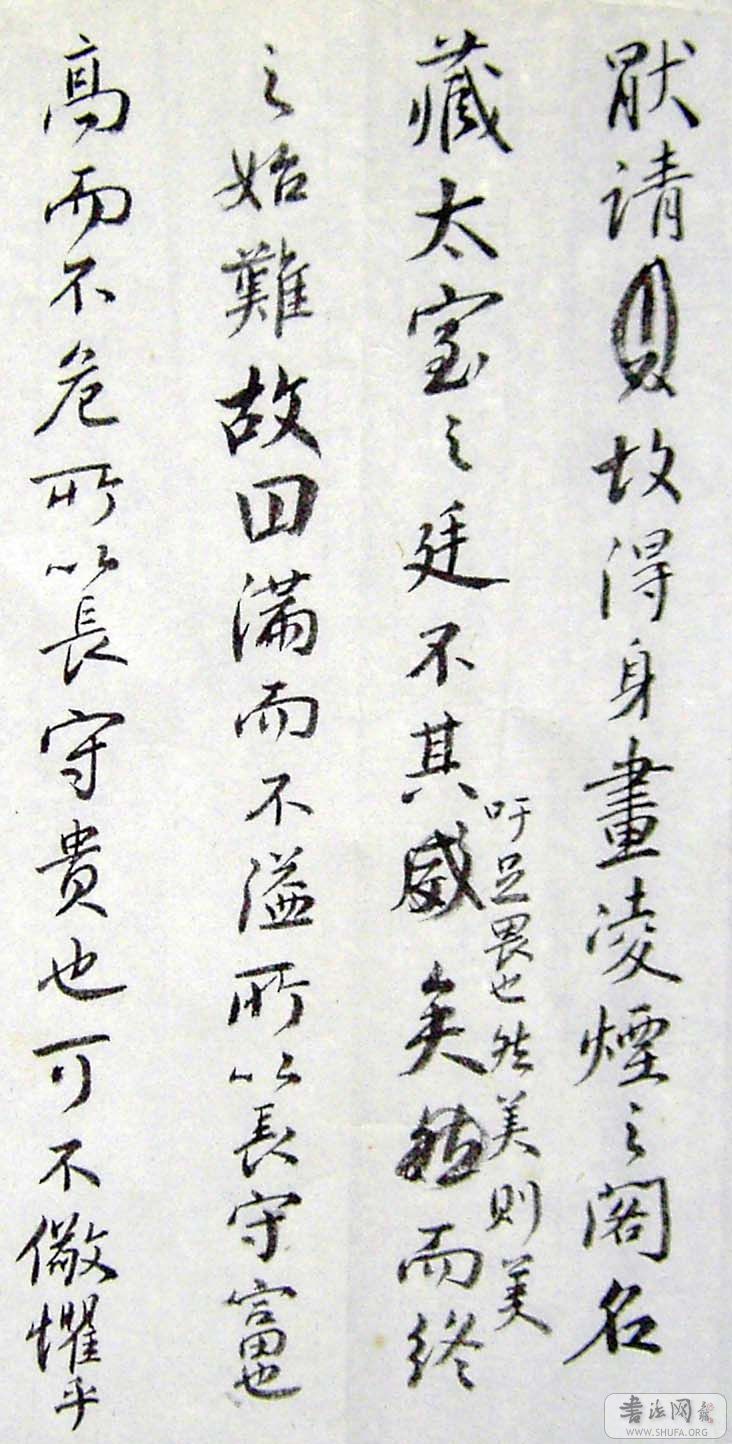 猒請故得身畫凌煙之閣名
藏太室之廷不其盛矣而終
吁足畏也然美則美
之始難故曰滿而不溢所以長守富也
高而不危所以長守貴也可不儆懼乎
书法网
WWW.SHUFA.ORG